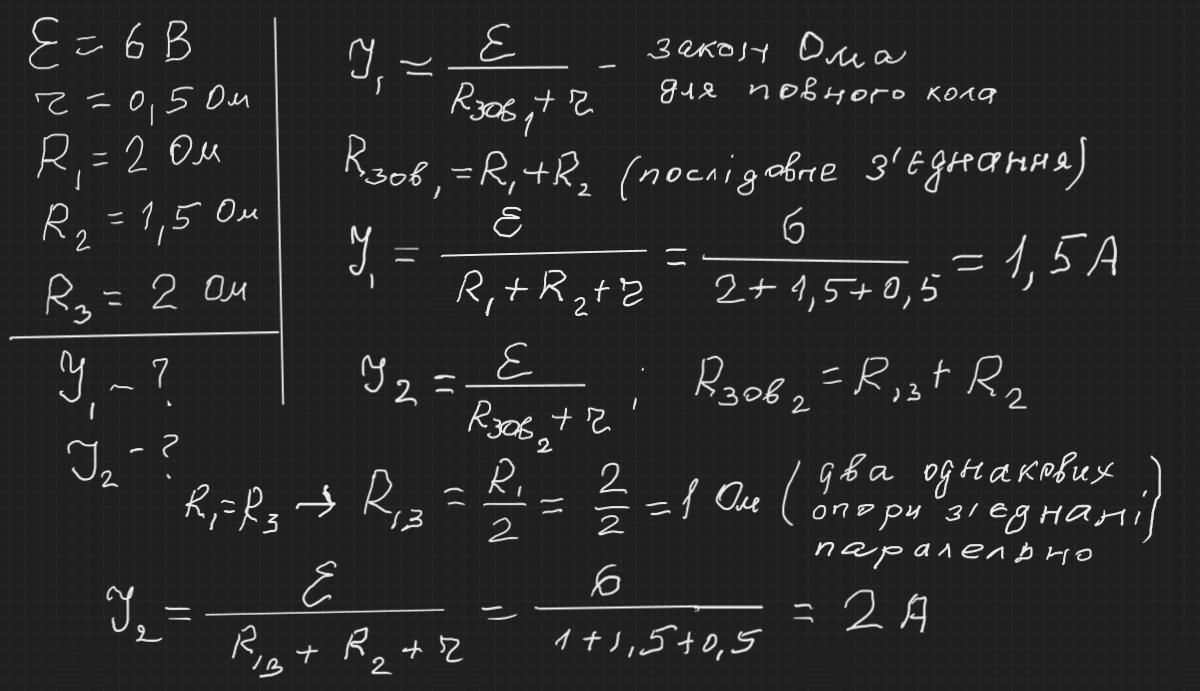 ℰ = 6 В
r = 0,5 Ом
R₁ = 2 Ом
R₂ = 1,5 Ом
R₃ = 2 Ом
I₁ - ?
I₂ - ?
I₁ = ℰ / (Rзов₁ + r) - закон Ома
для повного кола
Rзов₁ = R₁ + R₂ (послідовне з'єднання)
I₁ = ℰ / (R₁ + R₂ + r) = 6 / (2 + 1,5 + 0,5 = 1,5 А
I₂ = ℰ / (Rзов₂ + r) ; Rзов₂ = R₁₃ + R₂
R₁ = R₃ → R₁₃ = R₁ / 2 = 2 / 2 = 1 Ом (два однакових
опори з'єднані)
паралельно
I₂ = ℰ / (R₁₃ + R₂ + r) = 6 / (1 + 1,5 + 0,5) = 2 А